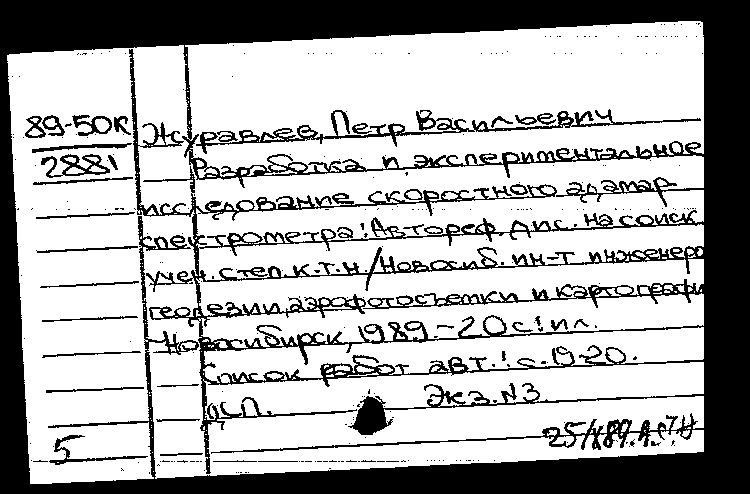 89-50К
2881
Журавлев, Петр Васильевич
Разработка и экспериментальное
исследование скоростного адамар
спектрометра: Автореф. дис. на соиск.
учен. степ. к.т.н. / Новосиб. ин-т инженеро
геодезии, аэрофотосъемки и картографи
Новосибирск, 1989. - 20 с: ил.
Список работ авт.: с. 19-20.
ДСП. Экз. N3
5